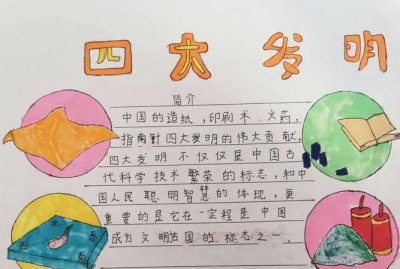 四大发明
简介
中国的造纸,印刷术.火药,
指南针四大发明的伟大贡献.
四大发明不仅仅是中国古
代科学技术繁荣的标志,和中
国人民聪明智慧的体现,更
重要的是它在一定程是中国
成为文明古国的标志之一.
北
东